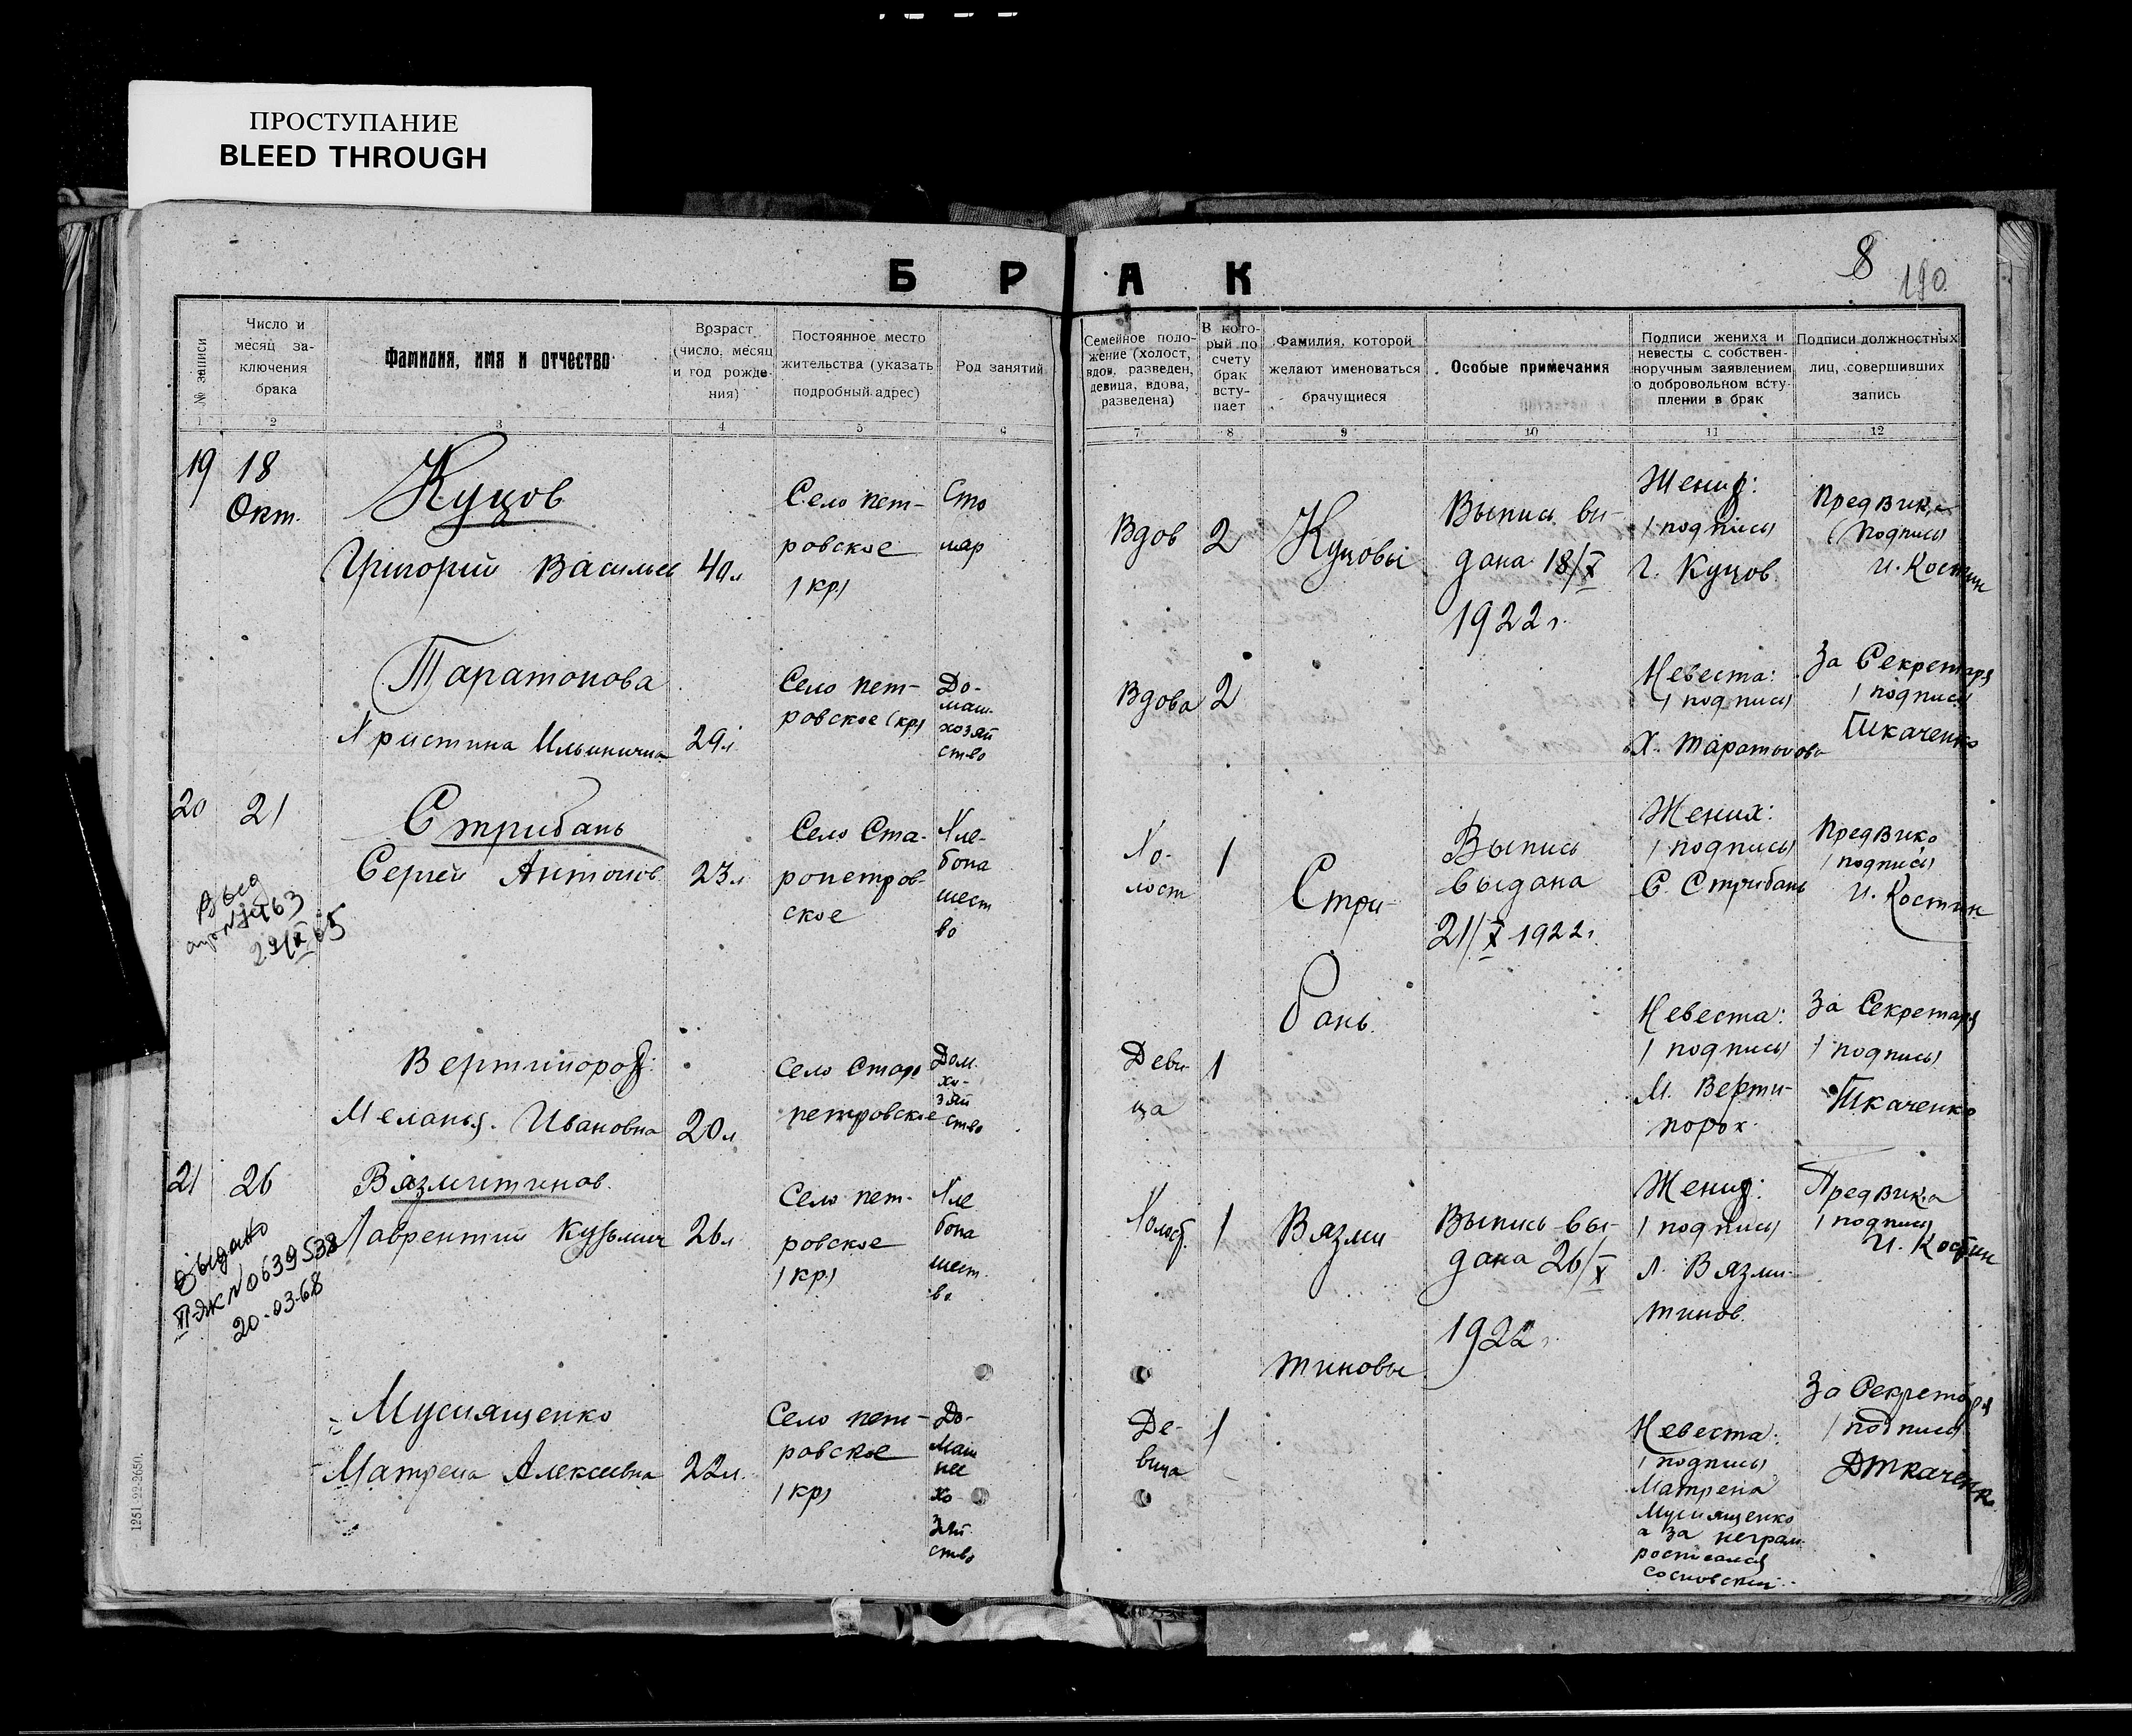 ПРОСТУПАНИЕ
BLEED THROUGH
БРАК
8
190
№ записи
Число и
месяц за-
ключения
брака
Фамилия, имя и отчество
Возраст
(число, месяц
и год рожде-
ния)
Постоянное место
жительства (указать
подробный адрес)
Род занятий
Семейное поло-
жение (холост,
вдов, разведен,
девица, вдова,
разведена)
В кото-
рый по
счету
брак
всту-
пает
Фамилия, которой
желают именоваться
брачущиеся
Особые примечания
Подписи жениха и
невесты с собствен-
норучным заявлением
о добровольном всту-
плении в брак
Подписи должностных
лиц, совершивших
запись
1 2 3 4 5 6 7 8 9 10 11 12
19
18
Окт.
Куцов
Григорий Васильев
40л
Село пет-
ровское
(кр)
Сто
ляр
Вдов
2
Куцовы
Выпись вы-
дана 18/X
1922г.
Жених:
(подпись)
Г. Куцов
Предвика
(подпись)
И. Костин
Таратонова
Христина Ильинична
29л
Село пет-
ровское (кр)
До-
маш.
хозяй
ство
Вдова
2
Невеста:
(подпись)
Х. Таратонова
За Секретаря
(подпись)
Ткаченко
20
21
Стрибань
Сергей Антонов.
23л
Село Ста-
ропетров-
ское
Хле-
бопа
шест
во
Хо-
лост
1
Стри-
бань.
Выпись
выдана
21/X 1922г.
Жених:
(подпись)
С. Стрибань
Предвика
(подпись)
И. Костин
Выд
29/X 65
Вертипорох:
Меланья. Ивановна
20л
Село Старо
петровское
Дом.
хо-
зяй
ство
Деви-
ца
1
Невеста:
(подпись)
М. Верти-
порох.
За Секретаря
(подпись)
Ткаченко
21
26
Вязмитинов.
Лаврентий Кузьмич
26л
Село пет-
ровское
(кр)
Хле
бопа
шест.
во
Холост.
1
Вязми
тиновы
Выпись вы-
дана 26/X
1922г.
Жених:
(подпись)
Л. Вязми-
тинов.
Предвика
(подпись)
И. Костин
Выдано
II-ЯК №0639538
20-03-68
Мусиященко
Матрена Алексеевна
22л.
Село пет-
ровское
(кр)
До-
маш
нее
хо-
зяй
ство
Де-
вица
1
Невеста:
(подпись)
Матрена
Мусиященко
а за неграм.
росписался
Сосновский.
За Секретаря
(подпись)
ДТкаченко
1251 22-2650.